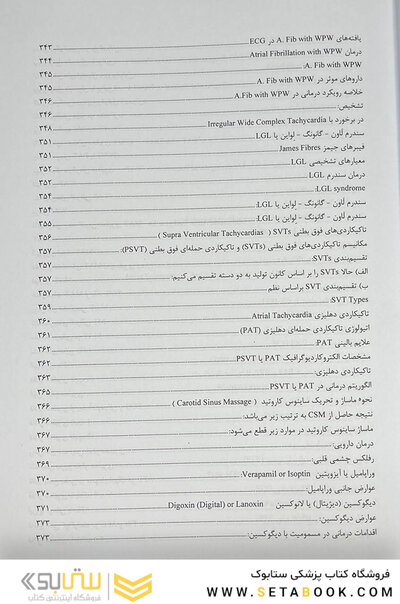 یافته‌های A. Fib with WPW در ECG ۳۴۳
درمان Atrial Fibrillation with WPW ۳۴۴
A. Fib with WPW: ۳۴۵
داروهای موثر در A. Fib with WPW ۳۴۵
خلاصه رویکرد درمانی در A.Fib with WPW ۳۴۶
تشخیص: ۳۴۶
در برخورد با Irregular Wide Complex Tachycardia ۳۴۸
سندرم لاون - گانونگ - لواین یا LGL ۳۵۱
فیبرهای جیمز James Fibres ۳۵۱
معیارهای تشخیصی LGL ۳۵۲
درمان سندرم LGL ۳۵۲
LGL syndrome: ۳۵۴
سندرم لاون - گانونگ - لواین یا LGL: ۳۵۴
سندرم لاون - گانونگ - لواین یا LGL: ۳۵۵
تاکیکاردی‌های فوق بطنی SVTs ( Supra Ventricular Tachycardias) ۳۵۶
مکانیسم تاکیکاردی‌های فوق بطنی (SVTs) و تاکیکاردی حمله‌ای فوق بطنی (PSVT): ۳۵۷
تقسیم‌بندی SVTs: ۳۵۷
الف) حالا SVTs را بر اساس کانون تولید به دو دسته تقسیم می‌کنیم: ۳۵۷
ب) تقسیم‌بندی SVT براساس نظم ۳۵۷
SVT Types: ۳۵۹
تاکیکاردی دهلیزی Atrial Tachycardia ۳۶۰
اتیولوژی تاکیکاردی حمله‌ای دهلیزی (PAT) ۳۶۱
علایم بالینی PAT: ۳۶۲
مشخصات الکتروکاردیوگرافیک PAT یا PSVT ۳۶۲
تاکیکاردی دهلیزی: ۳۶۳
الگوریتم درمانی در PAT یا PSVT: ۳۶۵
نحوه ماساژ و تحریک ساینوس کاروتید ( Carotid Sinus Massage) ۳۶۶
نتیجه حاصل از CSM به ترتیب زیر می‌باشد: ۳۶۶
ماساژ ساینوس کاروتید در موارد زیر قطع می‌شود: ۳۶۷
درمان دارویی: ۳۶۷
رفلکس چشمی قلبی: ۳۶۹
وراپامیل یا آیزوپتین Verapamil or Isoptin ۳۷۰
عوارض جانبی وراپامیل: ۳۷۰
دیگوکسین (دیژیتال) یا لانوکسین Digoxin (Digital) or Lanoxin ۳۷۱
عوارض دیگوکسین: ۳۷۳
اقدامات درمانی در مسمومیت با دیگوکسین: ۳۷۳
ستابوک
فروشگاه اینترنتی کتاب
فروشگاه کتاب پزشکی ستابوک
WWW.SETABOOK.COM